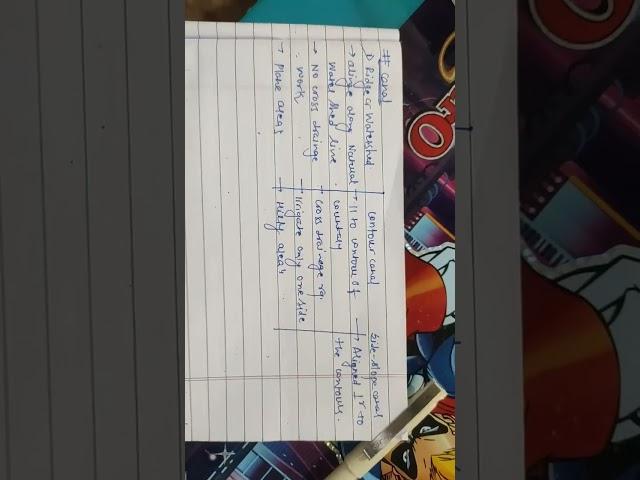 # Canal
1) Ridge or Watershed.
→ alinge along Natural
Water shed line.
→ No cross drainge
work.
→ Plane areas
contour canal
→ 11 to contour of
country
→ Cross drainege rq.
→ Irrigate only one side
→ Hilly areas
Side-slope canal
→ Aligned ⊥r to
the contours.